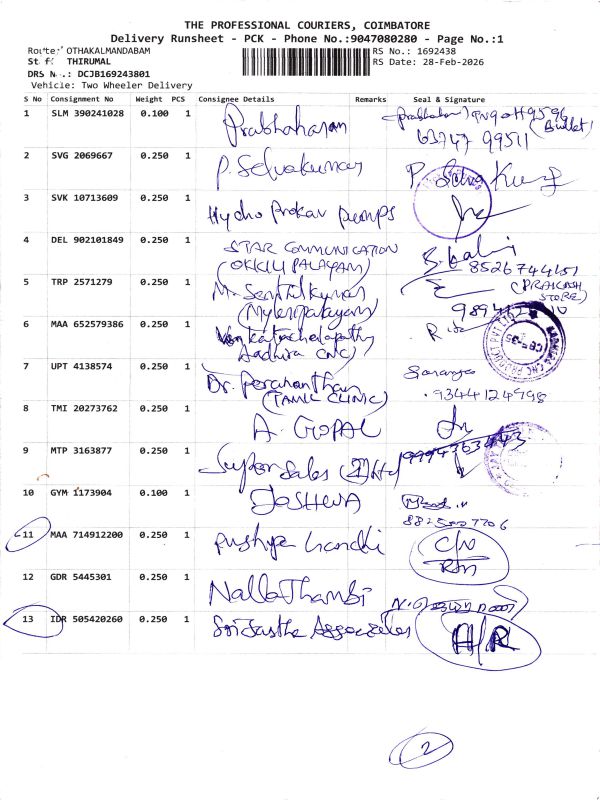 THE PROFESSIONAL COURIERS, COIMBATORE
Delivery Runsheet - PCK - Phone No.:9047080280 - Page No.:1
Route: OTHAKALMANDABAM
RS No.: 1692438
Staff: THIRUMAL
RS Date: 28-Feb-2026
DRS No.: DCJB169243801
Vehicle: Two Wheeler Delivery
S No Consignment No Weight PCS Consignee Details Remarks Seal & Signature
1 SLM 390241028 0.100 1 Prabhaharan
(Bullet)
63747 99511
2 SVG 2069667 0.250 1 P. Selvakumar
3 SVK 10713609 0.250 1 Hydro Prokav Pumps
4 DEL 902101849 0.250 1 STAR COMMUNICATION
(OKKILI PALAYAM)
5 TRP 2571279 0.250 1 M. Senthilkumar (PRAKASH STORE)
(Myleripalayam)
6 MAA 652579386 0.250 1 Venkatachalapathy
Aadhira CNC)
7 UPT 4138574 0.250 1 Dr. Perananthan
(TAMIL CLINIC) 9344124998
8 TMI 20273762 0.250 1 A. GOPAL
9 MTP 3163877 0.250 1 Super Sales (I) Ltd
10 GYM 1173904 0.100 1 JOSHWA
11 MAA 714912200 0.250 1 Pushpa Gandhi C/N
12 GDR 5445301 0.250 1 Nalla Thambi
13 IDR 505420260 0.250 1 Sri Sastha Associates H/R
2